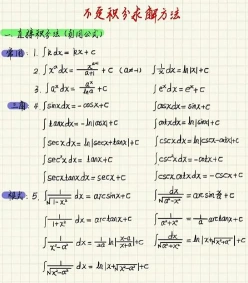 不定积分求解方法
一、直接积分法（利用公式）
常用: 1. ∫kdx = kx + C
2. ∫xᵃdx = xᵃ⁺¹/(a+1) + C (a≠-1) ∫1/x dx = ln|x| + C
3. ∫aˣdx = aˣ/lna + C ∫eˣdx = eˣ + C
三角: 4. ∫sinxdx = -cosx + C ∫cosxdx = sinx + C
∫tanxdx = -ln|cosx| + C ∫cotxdx = ln|sinx| + C
∫secxdx = ln|secx+tanx| + C ∫cscxdx = ln|cscx-cotx| + C
∫sec²xdx = tanx + C ∫csc²xdx = -cotx + C
∫secxtanxdx = secx + C ∫cscxcotxdx = -cscx + C
5. ∫1/√(1-x²) dx = arcsinx + C ∫dx/√(a²-x²) = arcsin x/a + C
∫1/(1+x²) dx = arctanx + C ∫1/(a²+x²) = 1/a arctan x/a + C
∫1/(x²-a²) dx = 1/2a ln|(x-a)/(x+a)| + C ∫dx/√(a²+x²) = ln|x+√(a²+x²)| + C
∫1/√(x²-a²) dx = ln|x+√(x²-a²)| + C